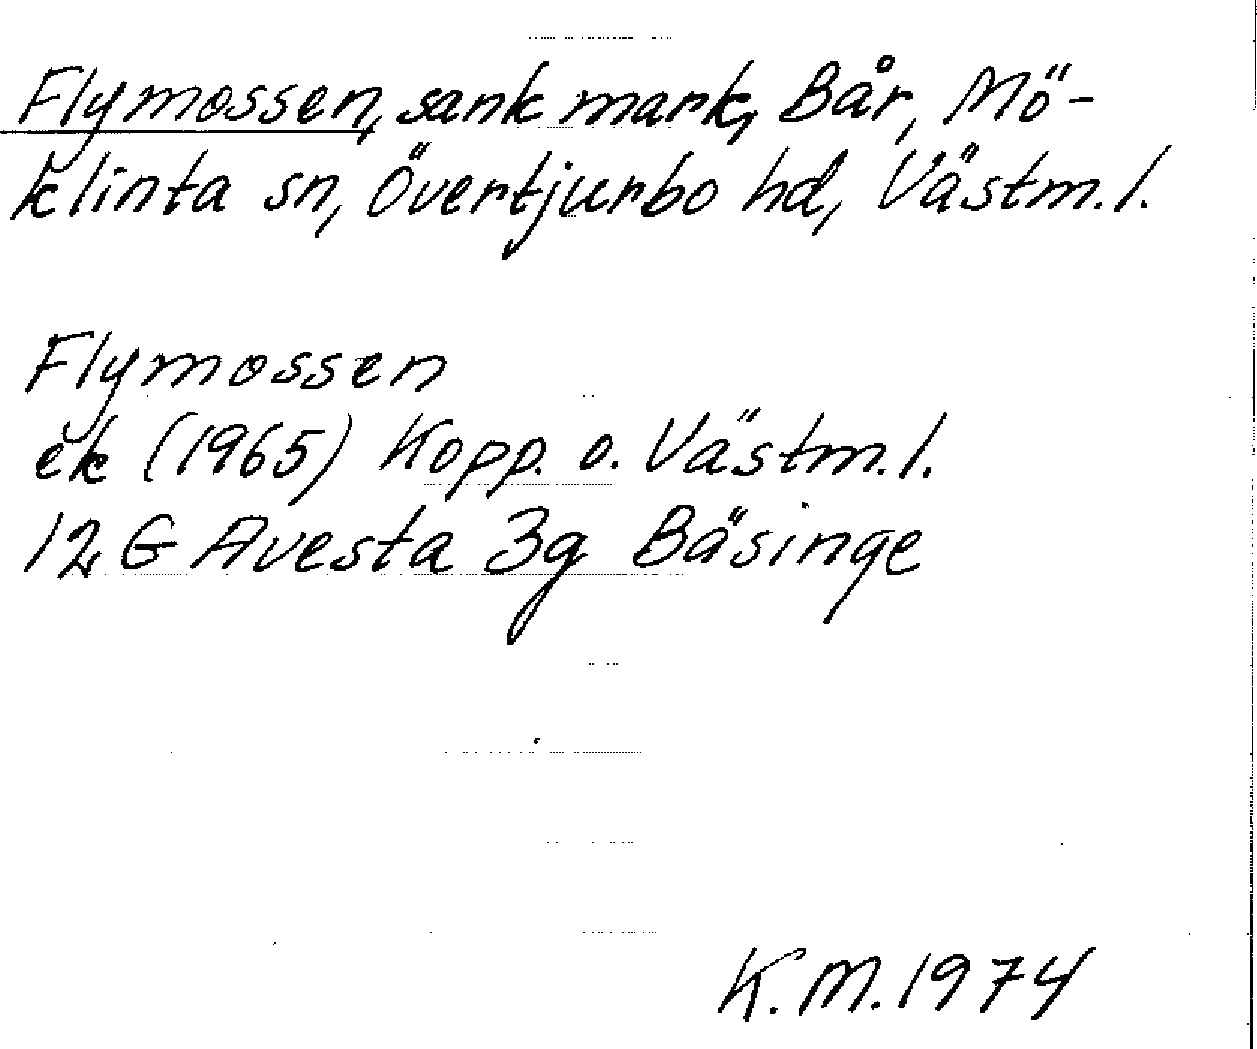 Flymossen, sank mark, Bår, Mö-
klinta sn, Övertjurbo hd, Västm.l.
Flymossen
ek (1965) Kopp. o. Västm.l.
12 G Avesta 3g Bäsinge
K.M. 1974